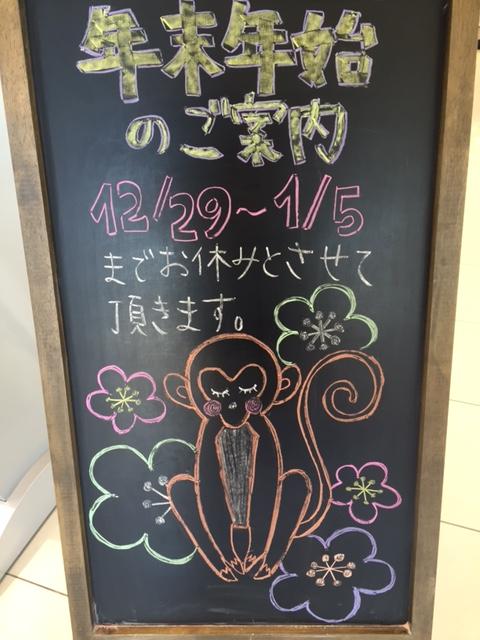 年末年始
のご案内
12/29～1/5
までお休みとさせて
頂きます。